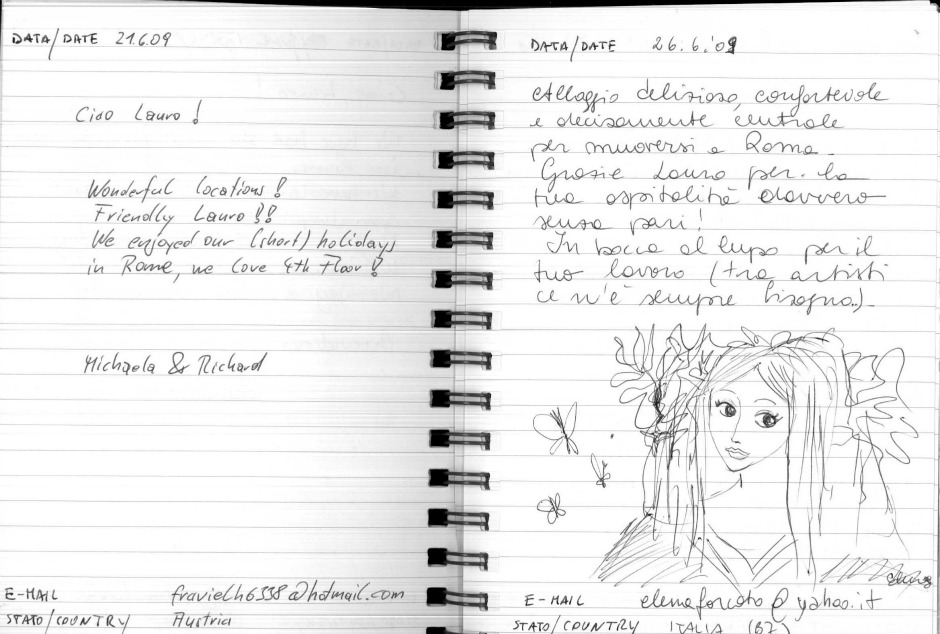 DATA/DATE 21.6.09
Ciao Lauro!
Wonderful locations!
Friendly Lauro!!
We enjoyed our (short) holidays
in Rome, we love 4th Floor!
Michaela & Richard
E-MAIL fravielh6338@hotmail.com
STATO/COUNTRY Austria
DATA/DATE 26.6.'09
Alloggio delizioso, confortevole
e decisamente centrale
per muoversi a Roma.
Grazie Lauro per la
tua ospitalità davvero
senza pari!
In bocca al lupo per il
tuo lavoro (tra artisti
ce n'è sempre bisogno..).
E-MAIL elenaforcato@yahoo.it
STATO/COUNTRY ITALIA (BZ)